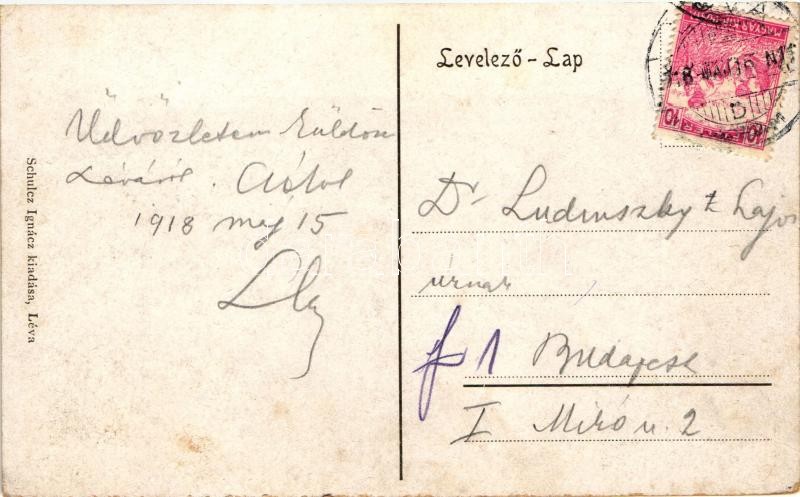 Levelező - Lap
Üdvözletem küldöm
Léváról.
1918 máj 15
Dr Ludinszky Lajos
úrnak
1 Budapest
I Mikó u. 2
Schulcz Ignácz kiadása, Léva
MAGYAR KIR. POSTA
10 FILLÉR 10
8 MAJ 16 N11
D